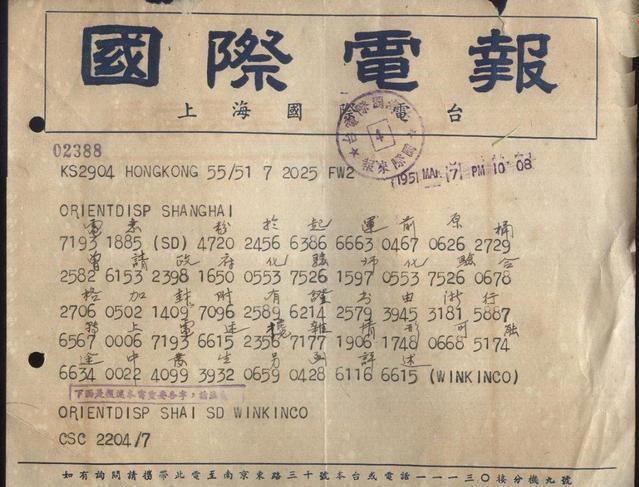 國際電報
上海國際電台
4
02388
KS2904 HONGKONG 55/51 7 2025 FW2
1951 MAR (7) PM 10 08
ORIENTDISP SHANGHAI
電悉 粉於起運前原桶
7193 1885 (SD) 4720 2456 6386 6663 0467 0626 2729
曾請政府化驗師化驗合
2582 6153 2398 1650 0553 7526 1597 0553 7526 0678
格加封附有證书由浙行
2706 0502 1409 7096 2589 6214 2579 3945 3181 5887
上電述攙雜情形可能
6567 0006 7193 6615 2356 7177 1906 1748 0668 5174
途中發生另函詳述
6634 0022 4099 3932 0659 0428 6116 6615 (WINKINCO)
ORIENTDISP SHAI SD WINKINCO
CSC 2204/7
如有詢問請攜帶此電至南京東路三十號本台或電話一一一三〇接分機九號